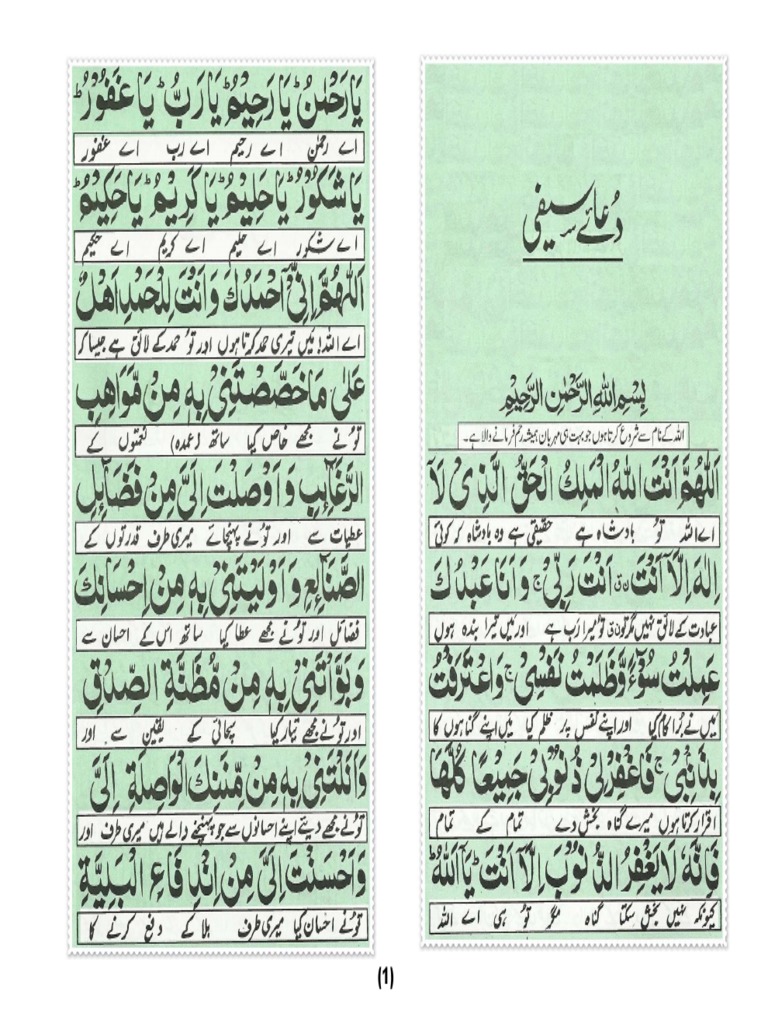 دُعائے سیفی
بِسْمِ اللهِ الرَّحْمٰنِ الرَّحِيْمِ
اللہ کے نام سے شروع کرتا ہوں جو بہت ہی مہربان ہمیشہ رحم فرمانے والا ہے۔
اَللّٰهُمَّ اَنْتَ اللهُ الْمَلِكُ الْحَقُّ الَّذِىْ لَآ
اے اللہ تُو بادشاہ ہے حقیقی ہے وہ بادشاہ کہ کوئی
اِلٰهَ اِلَّآ اَنْتَ اَنْتَ رَبِّىْ ج وَ اَنَا عَبْدُكَ
عبادت کے لائق نہیں مگر تو تُو میرا رب ہے اور میں تیرا بندہ ہوں
عَمِلْتُ سُوْٓءً وَّظَلَمْتُ نَفْسِىْ ج وَاعْتَرَفْتُ
میں نے بُرا کام کیا اور اپنے نفس پر ظلم کیا میں اپنے گناہوں کا
بِذَنْبِىْ ج فَاغْفِرْلِىْ ذُنُوْبِىْ جَمِيْعًا كُلَّهَا
اقرار کرتا ہوں میرے گناہ بخش دے تمام کے تمام
فَاِنَّهٗ لَا يَغْفِرُ الذُّنُوْبَ اِلَّآ اَنْتَ ط يَآ اَللهُ ط
کیونکہ نہیں بخش سکتا گناہ مگر تُو ہی اے اللہ
يَا رَحْمٰنُ ط يَا رَحِيْمُ ط يَا رَبُّ ط يَا غَفُوْرُ ط
اے رحمٰن اے رحیم اے رب اے غفور
يَا شَكُوْرُ ط يَا حَلِيْمُ ط يَا كَرِيْمُ ط يَا حَكِيْمُ ط
اے شکور اے حلیم اے کریم اے حکیم
اَللّٰهُمَّ اِنِّىْٓ اَحْمَدُكَ وَ اَنْتَ لِلْحَمْدِ اَهْلٌ
اے اللہ! میں تیری حمد کرتا ہوں اور تُو حمد کے لائق ہے جیسا کہ
عَلٰى مَا خَصَّصْتَنِىْ بِهٖ مِنْ مَّوَاهِبِ
تُو نے مجھے خاص کیا ساتھ (عمدہ) نعمتوں کے
الرَّغَآئِبِ وَ اَوْصَلْتَ اِلَىَّ مِنْ فَضَآئِلِ
عطیات سے اور تُو نے پہنچائے میری طرف قدرتوں کے
الصَّنَآئِعِ وَ اَوْلَيْتَنِىْ بِهٖ مِنْ اِحْسَانِكَ
فضائل اور تُو نے مجھے عطا کیا ساتھ اس کے احسان سے
وَ بَوَّاْتَنِىْ بِهٖ مِنْ مَّظَنَّةِ الصِّدْقِ
اور تُو نے مجھے تیار کیا سچائی کے یقین سے اور
وَ اَنَلْتَنِىْ بِهٖ مِنْ مِّنَنِكَ الْوَاصِلَةِ اِلَىَّ
تُو نے مجھے دیئے اپنے احسانوں سے جو پہنچنے والے ہیں میری طرف اور
وَ اَحْسَنْتَ اِلَىَّ مِنْ اِنْدِفَاعِ الْبَلِيَّةِ
تُو نے احسان کیا میری طرف بلا کے دفع کرنے کا
(1)